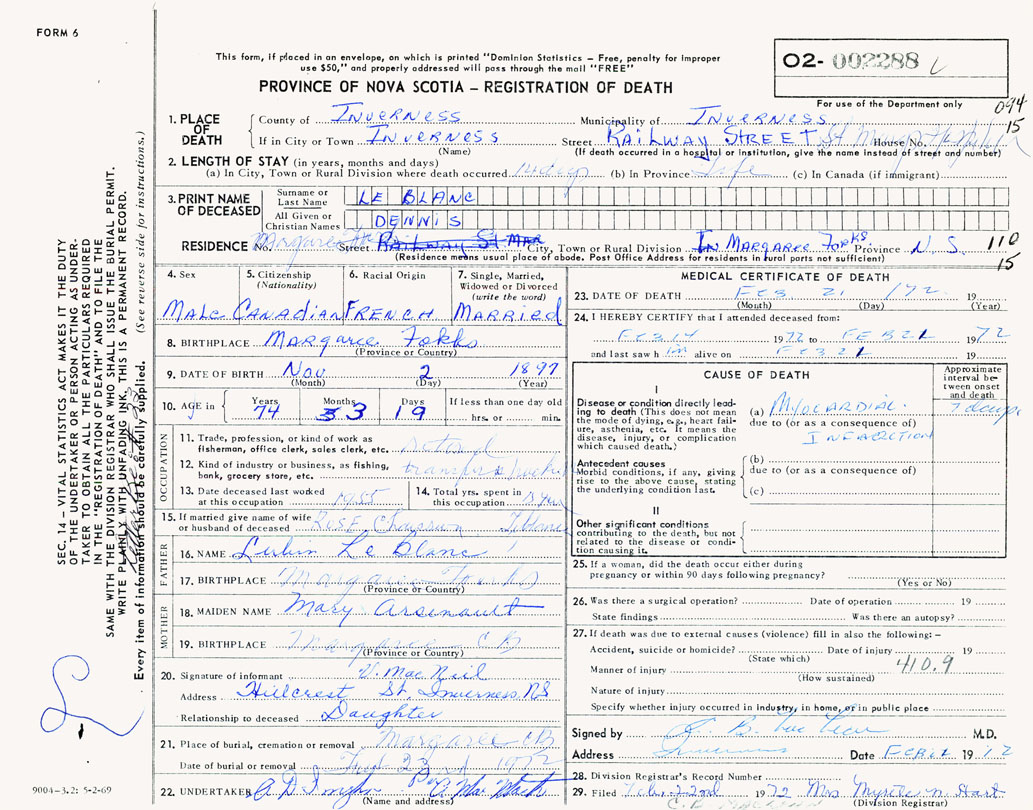 FORM 6
This form, if placed in an envelope, on which is printed "Dominion Statistics – Free, penalty for improper
use $50," and properly addressed will pass through the mail "FREE"
O2- 002288
PROVINCE OF NOVA SCOTIA – REGISTRATION OF DEATH
For use of the Department only
094
15
1. PLACE OF DEATH
County of INVERNESS Municipality of INVERNESS
If in City or Town INVERNESS Street RAILWAY STREET House No.
(Name) (If death occurred in a hospital or institution, give the name instead of street and number)
2. LENGTH OF STAY (in years, months and days)
(a) In City, Town or Rural Division where death occurred 14 days (b) In Province Life (c) In Canada (if immigrant)
3. PRINT NAME OF DECEASED
Surname or Last Name LE BLANC
All Given or Christian Names DENNIS
RESIDENCE No. Margaree Street RAILWAY ST MAR City, Town or Rural Division IN MARGAREE FORKS Province N.S. 110
(Residence means usual place of abode. Post Office Address for residents in rural parts not sufficient) 15
4. Sex 5. Citizenship (Nationality) 6. Racial Origin 7. Single, Married, Widowed or Divorced (write the word)
MALE CANADIAN FRENCH MARRIED
8. BIRTHPLACE MARGAREE FORKS
(Province or Country)
9. DATE OF BIRTH Nov 2 1897
(Month) (Day) (Year)
10. AGE in Years Months Days If less than one day old
74 3 3 19 hrs. or min.
OCCUPATION
11. Trade, profession, or kind of work as
fisherman, office clerk, sales clerk, etc.
12. Kind of industry or business, as fishing,
bank, grocery store, etc.
13. Date deceased last worked
at this occupation 1955
14. Total yrs. spent in
this occupation
15. If married give name of wife
or husband of deceased Rose Chiasson
FATHER
16. NAME Lubin Le Blanc
17. BIRTHPLACE Margaree Forks
(Province or Country)
MOTHER
18. MAIDEN NAME Mary Arsenault
19. BIRTHPLACE Margaree C B
(Province or Country)
20. Signature of informant V. Mac Neil
Address Hillcrest St, Inverness, NS
Relationship to deceased Daughter
21. Place of burial, cremation or removal Margaree CB
Date of burial or removal 1972
22. UNDERTAKER
(Name and address)
MEDICAL CERTIFICATE OF DEATH
23. DATE OF DEATH FEB 21 /72 19
(Month) (Day) (Year)
24. I HEREBY CERTIFY that I attended deceased from:
FEB 14 1972 to FEB 21 1972
and last saw h im alive on FEB 21 19
CAUSE OF DEATH
Approximate interval between onset and death
I
Disease or condition directly leading to death (This does not mean the mode of dying, e.g., heart failure, asthenia, etc. It means the disease, injury, or complication which caused death.)
(a) MYOCARDIAL 7 days
due to (or as a consequence of)
INFARCTION
Antecedent causes
Morbid conditions, if any, giving rise to the above cause, stating the underlying condition last.
(b)
due to (or as a consequence of)
(c)
II
Other significant conditions
contributing to the death, but not related to the disease or condition causing it.
25. If a woman, did the death occur either during
pregnancy or within 90 days following pregnancy?
(Yes or No)
26. Was there a surgical operation? Date of operation 19
State findings Was there an autopsy?
27. If death was due to external causes (violence) fill in also the following: –
Accident, suicide or homicide? Date of injury 19
(State which)
Manner of injury 410.9
(How sustained)
Nature of injury
Specify whether injury occurred in industry, in home, or in public place
Signed by M.D.
Address Inverness Date 19
28. Division Registrar's Record Number
29. Filed Feb. 22nd 1972 Mrs Myrtle N. Hart
(Division Registrar)
SEC. 14 – VITAL STATISTICS ACT MAKES IT THE DUTY
OF THE UNDERTAKER OR PERSON ACTING AS UNDERTAKER TO OBTAIN ALL THE PARTICULARS REQUIRED
IN THE "REGISTRATION OF DEATH" AND TO FILE THE
SAME WITH THE DIVISION REGISTRAR WHO SHALL ISSUE THE BURIAL PERMIT.
WRITE PLAINLY WITH UNFADING INK. THIS IS A PERMANENT RECORD.
Every item of information should be carefully supplied. (See reverse side for instructions.)
9004-3.2: 5-2-69